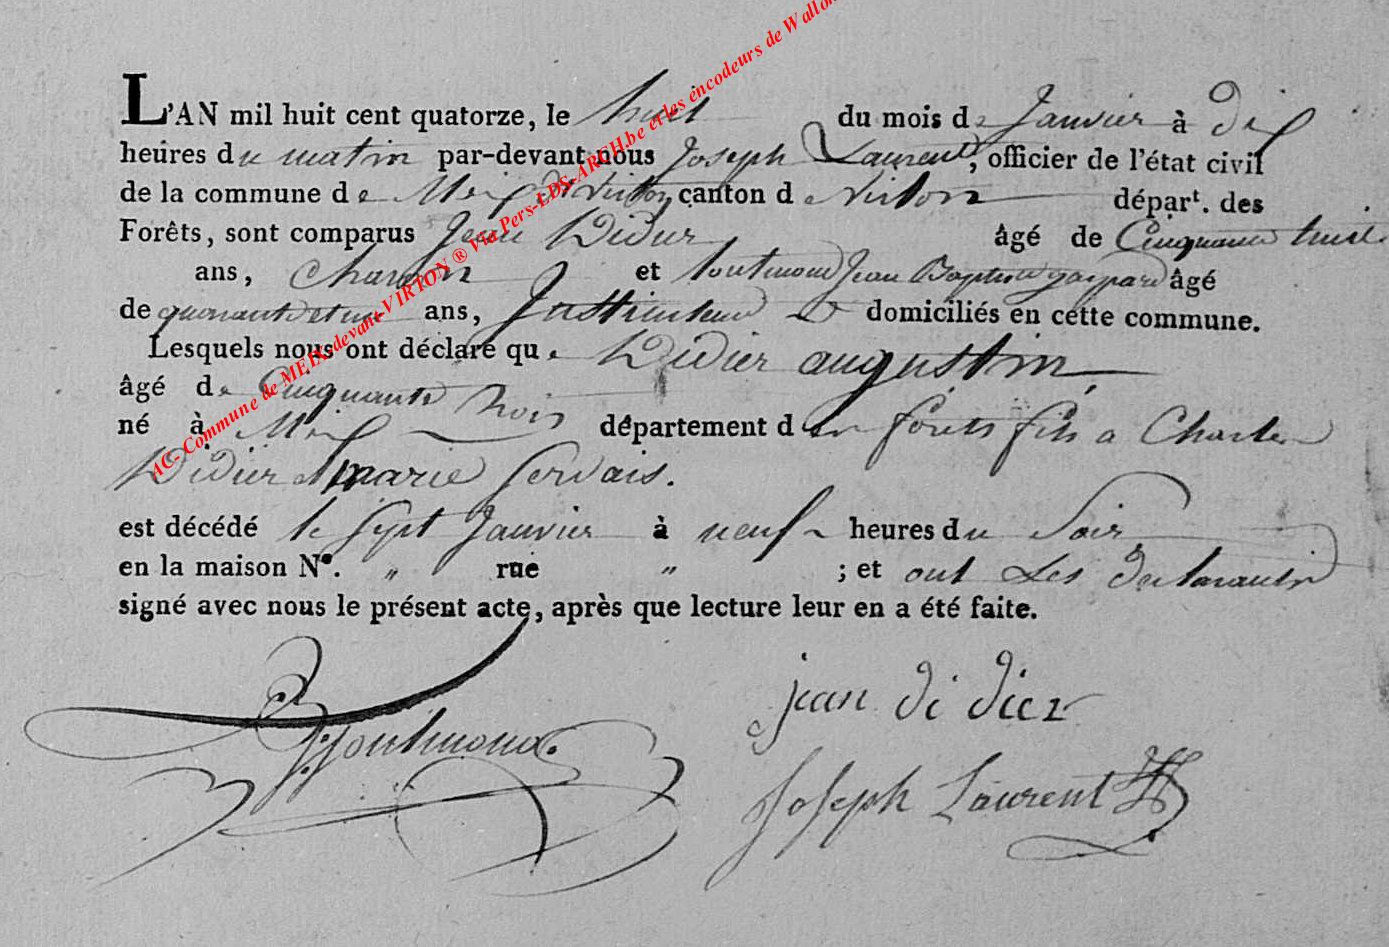 L'AN mil huit cent quatorze, le huit du mois de Janvier à dix
heures du matin par-devant nous Joseph Laurent, officier de l'état civil
de la commune de Meix dt Virton, canton de Virton départ. des
Forêts, sont comparus Jean Didier âgé de Cinquante huit
ans, Charon et toutmond Jean Baptiste gaspard âgé
de quarante et un ans, Instituteur domiciliés en cette commune.
Lesquels nous ont déclaré que Didier augustin,
âgé de Cinquante trois
né à Meix département des forêts fils a Charles
Didier et marie Gervais.
est décédé le sept Janvier à neuf heures du Soir
en la maison N°. " rue " ; et ont les declarants
signé avec nous le présent acte, après que lecture leur en a été faite.
jean di dier
Joseph Laurent
AC- Commune de MEIX-devant-VIRTON ® Via Pers-LDS-ARCH.be et les encodeurs de Wallon